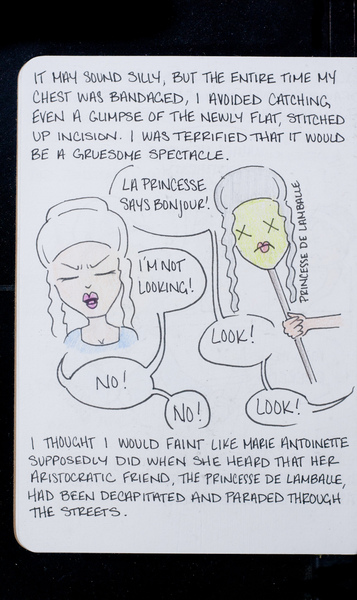 IT MAY SOUND SILLY, BUT THE ENTIRE TIME MY
CHEST WAS BANDAGED, I AVOIDED CATCHING
EVEN A GLIMPSE OF THE NEWLY FLAT, STITCHED
UP INCISION. I WAS TERRIFIED THAT IT WOULD
BE A GRUESOME SPECTACLE.
LA PRINCESSE
SAYS BONJOUR!
PRINCESSE DE LAMBALLE
I'M NOT
LOOKING!
LOOK!
NO!
NO!
LOOK!
I THOUGHT I WOULD FAINT LIKE MARIE ANTOINETTE
SUPPOSEDLY DID WHEN SHE HEARD THAT HER
ARISTOCRATIC FRIEND, THE PRINCESSE DE LAMBALLE,
HAD BEEN DECAPITATED AND PARADED THROUGH
THE STREETS.